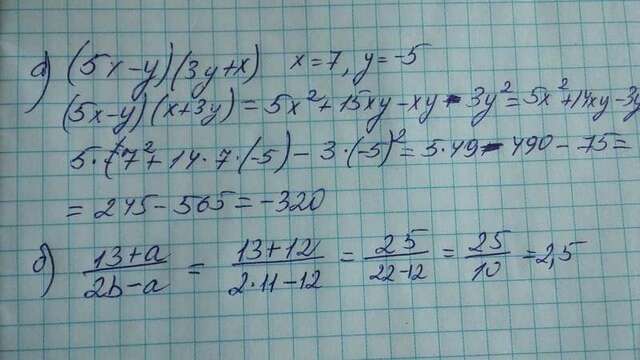 а) (5x-y)(3y+x) x=7, y=-5
(5x-y)(x+3y)=5x²+15xy-xy-3y²=5x²+14xy-3y
5·(7²+14·7·(-5)-3·(-5)²=5·49-490-75=
=245-565=-320
б) 13+a/2b-a = 13+12/2·11-12 = 25/22-12 = 25/10 =2,5